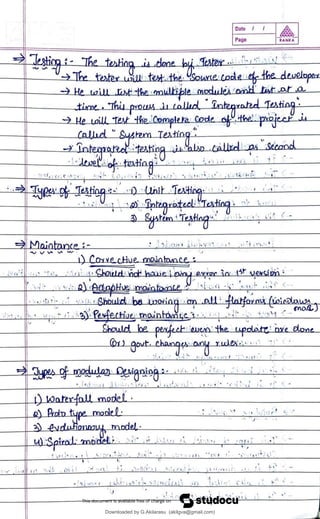 Date / /
Page
RANKA
⇒ Testing :- The testing is done by Tester
→ The tester will test the Source code of the developer
→ He will test the multiple modules and test at a
time. This process is called "Integrated Testing"
→ He will Test the Complete Code of the project is
Called "System Testing"
→ Integrated testing is also called as Second
level of testing
⇒ Types of Testing :- 1) Unit Testing
2) Integrated Testing
3) System Testing
⇒ Maintance :-
1) Corrective maintance :
Should not have any error in 1st version
2) Adaptive maintance
Should be working on all platforms (windows,
3) Perfective maintance
Should be perfect even the update are done
(or) govt. changes any rules
⇒ Types of modules Designing :-
1) Waterfall model.
2) Proto type model.
3) Evolutionary model.
4) Spiral model
This document is available free of charge on
studocu
Downloaded by G.Akilarasu (akilgvs@gmail.com)